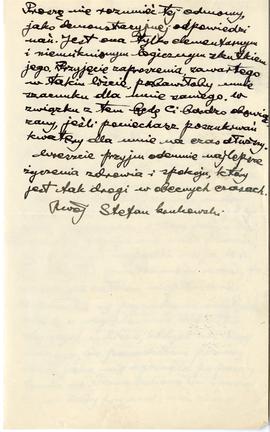 Proszę nie rozumieć tej odmowy,
jako demonstracyjnej odpowiedzi
na. Jest ona tylko elementarnym
i nieuniknionym logicznym skutkiem
jego. Przyjęcie zaproszenia zawartego
w takim liście, pozbawiłoby mnie
szacunku dla mnie samego. W
związku z tem będę Ci bardzo obowią
zany, jeśli poniechasz poszukiwań
kwatery dla mnie na czas
Wreszcie przyjm odemnie najlepsze
życzenia zdrowia i spokoju, który
jest tak drogi w obecnych czasach.
Twój Stefan